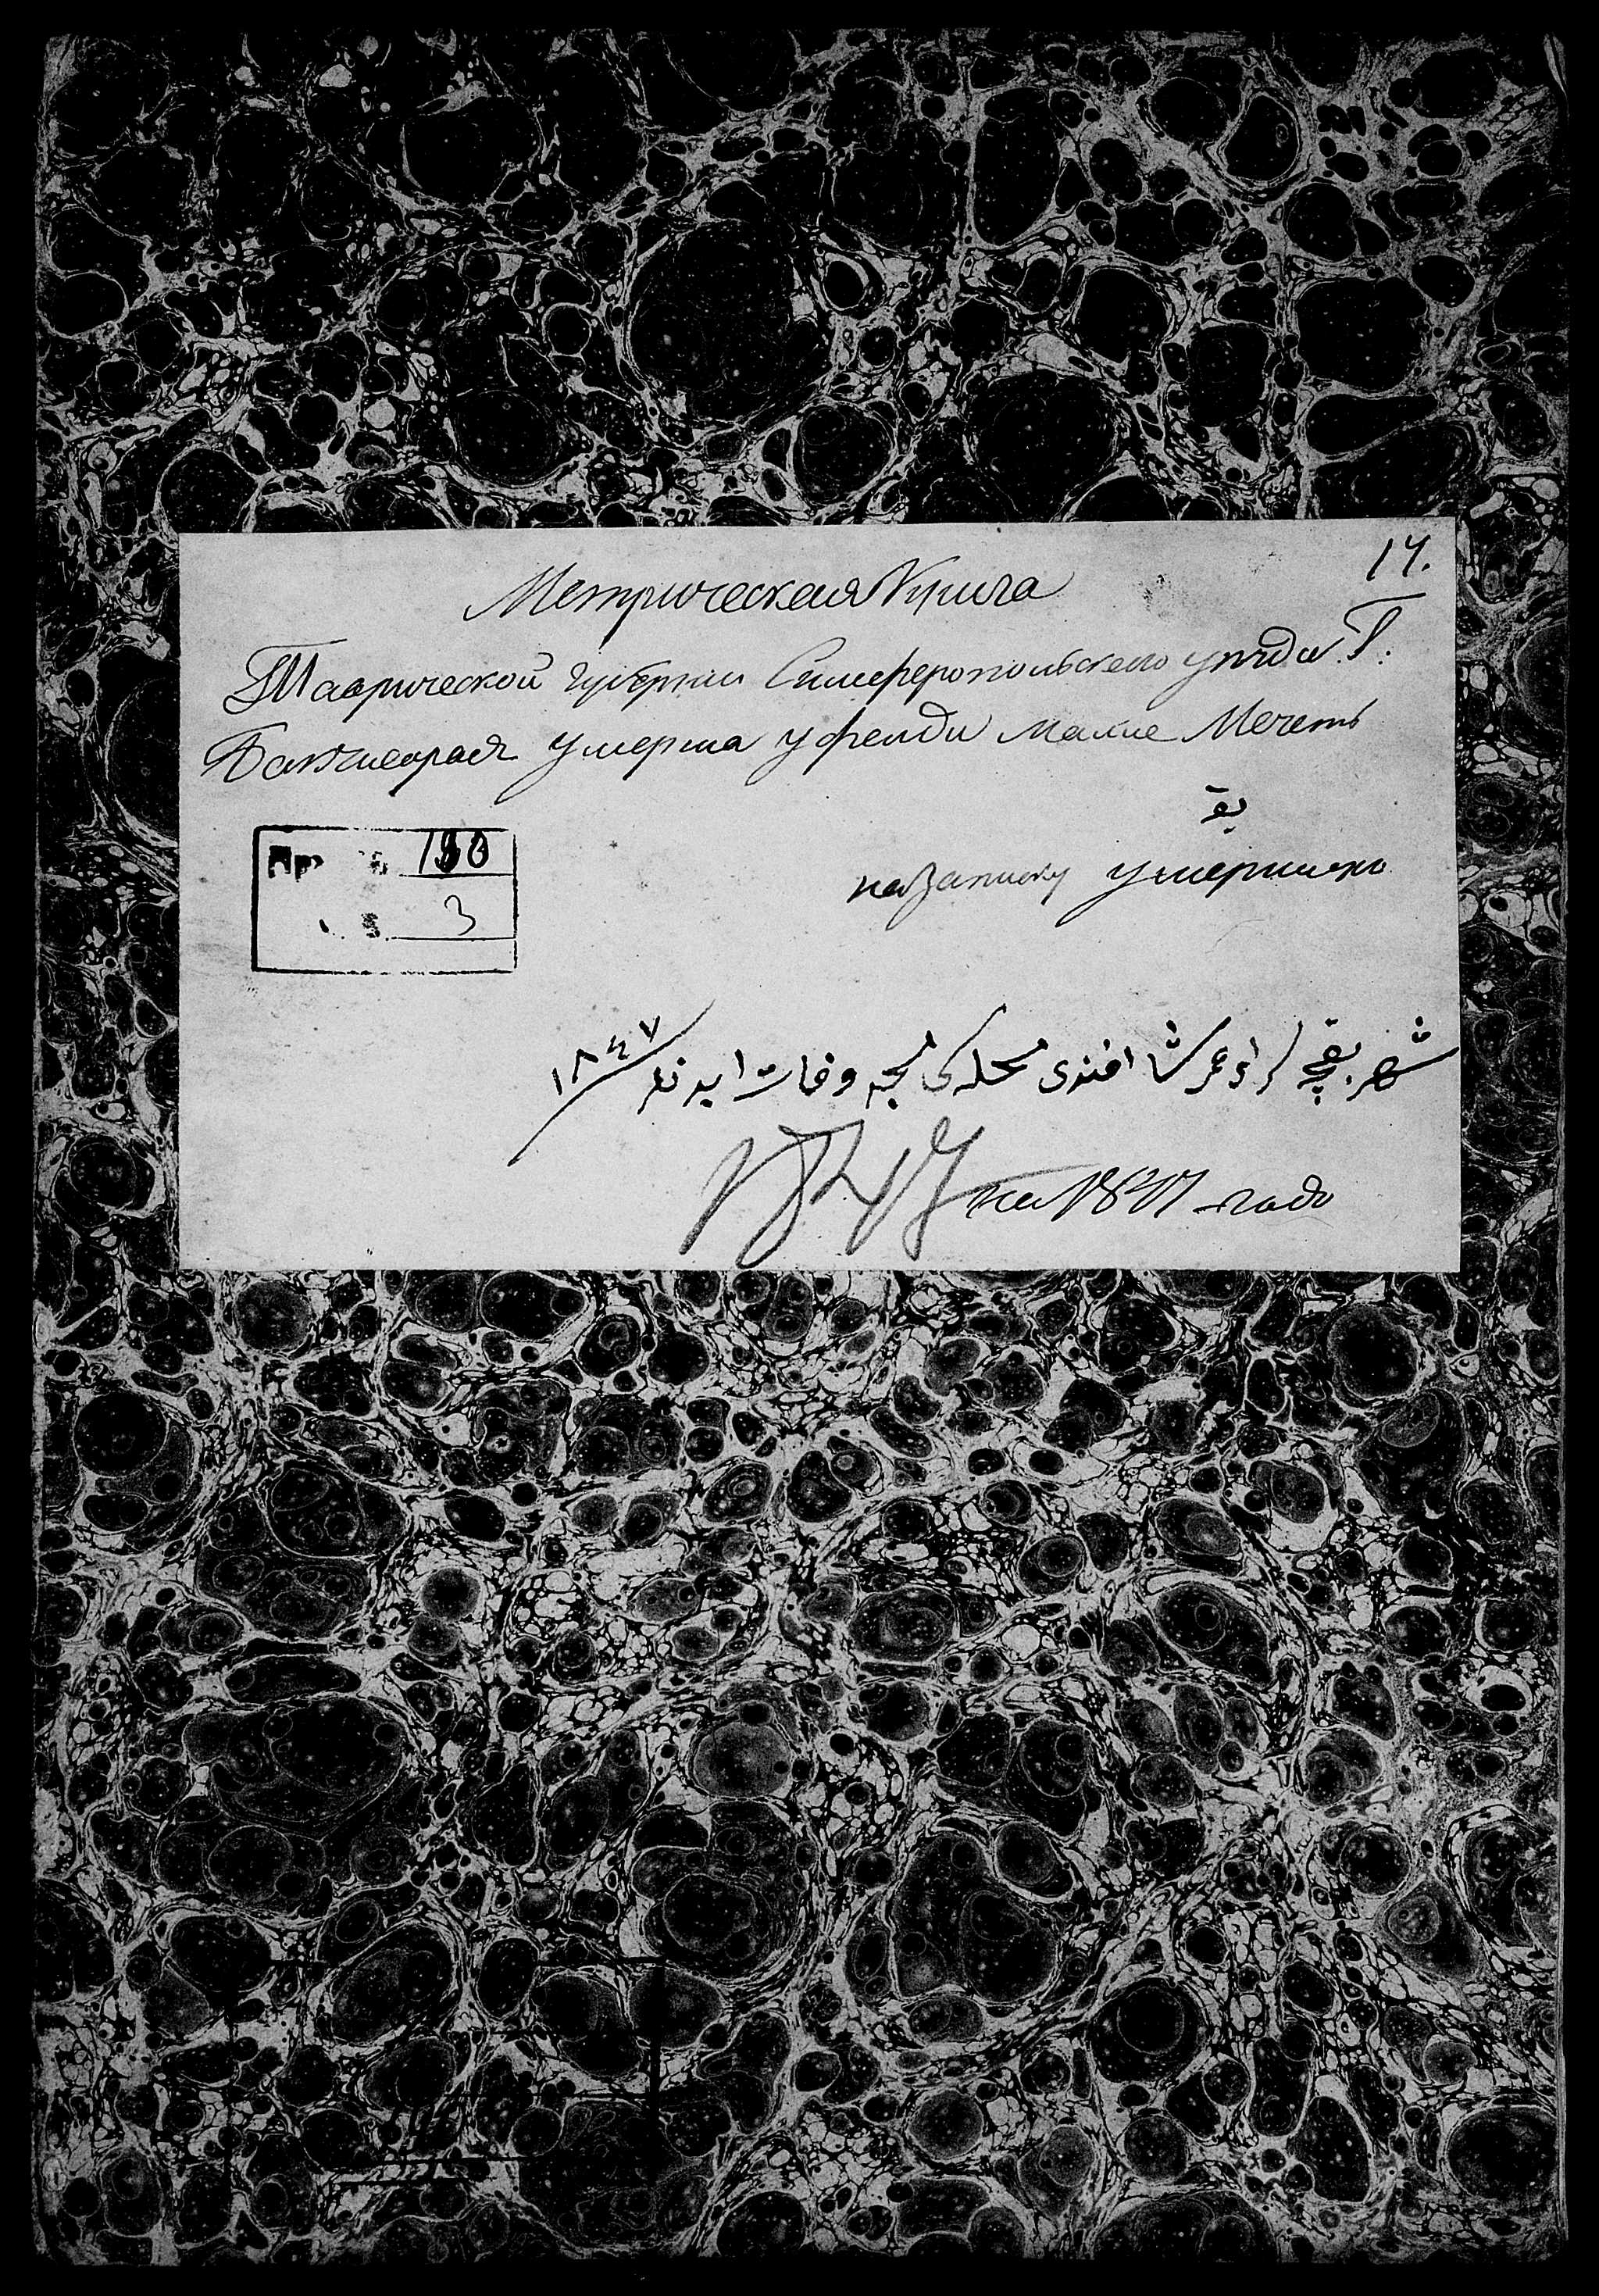 17.
Метрическая Книга
Таврической губернии Симферопольского уезда Г:
Бахчисарая Умерша уфенди Махле Мечеть
190
3
на записку умершихъ
شهر بقچه سراى عمرشا افندى محله كى وفات ايدنلر ١٨٤٧
1847
на 1847 годъ